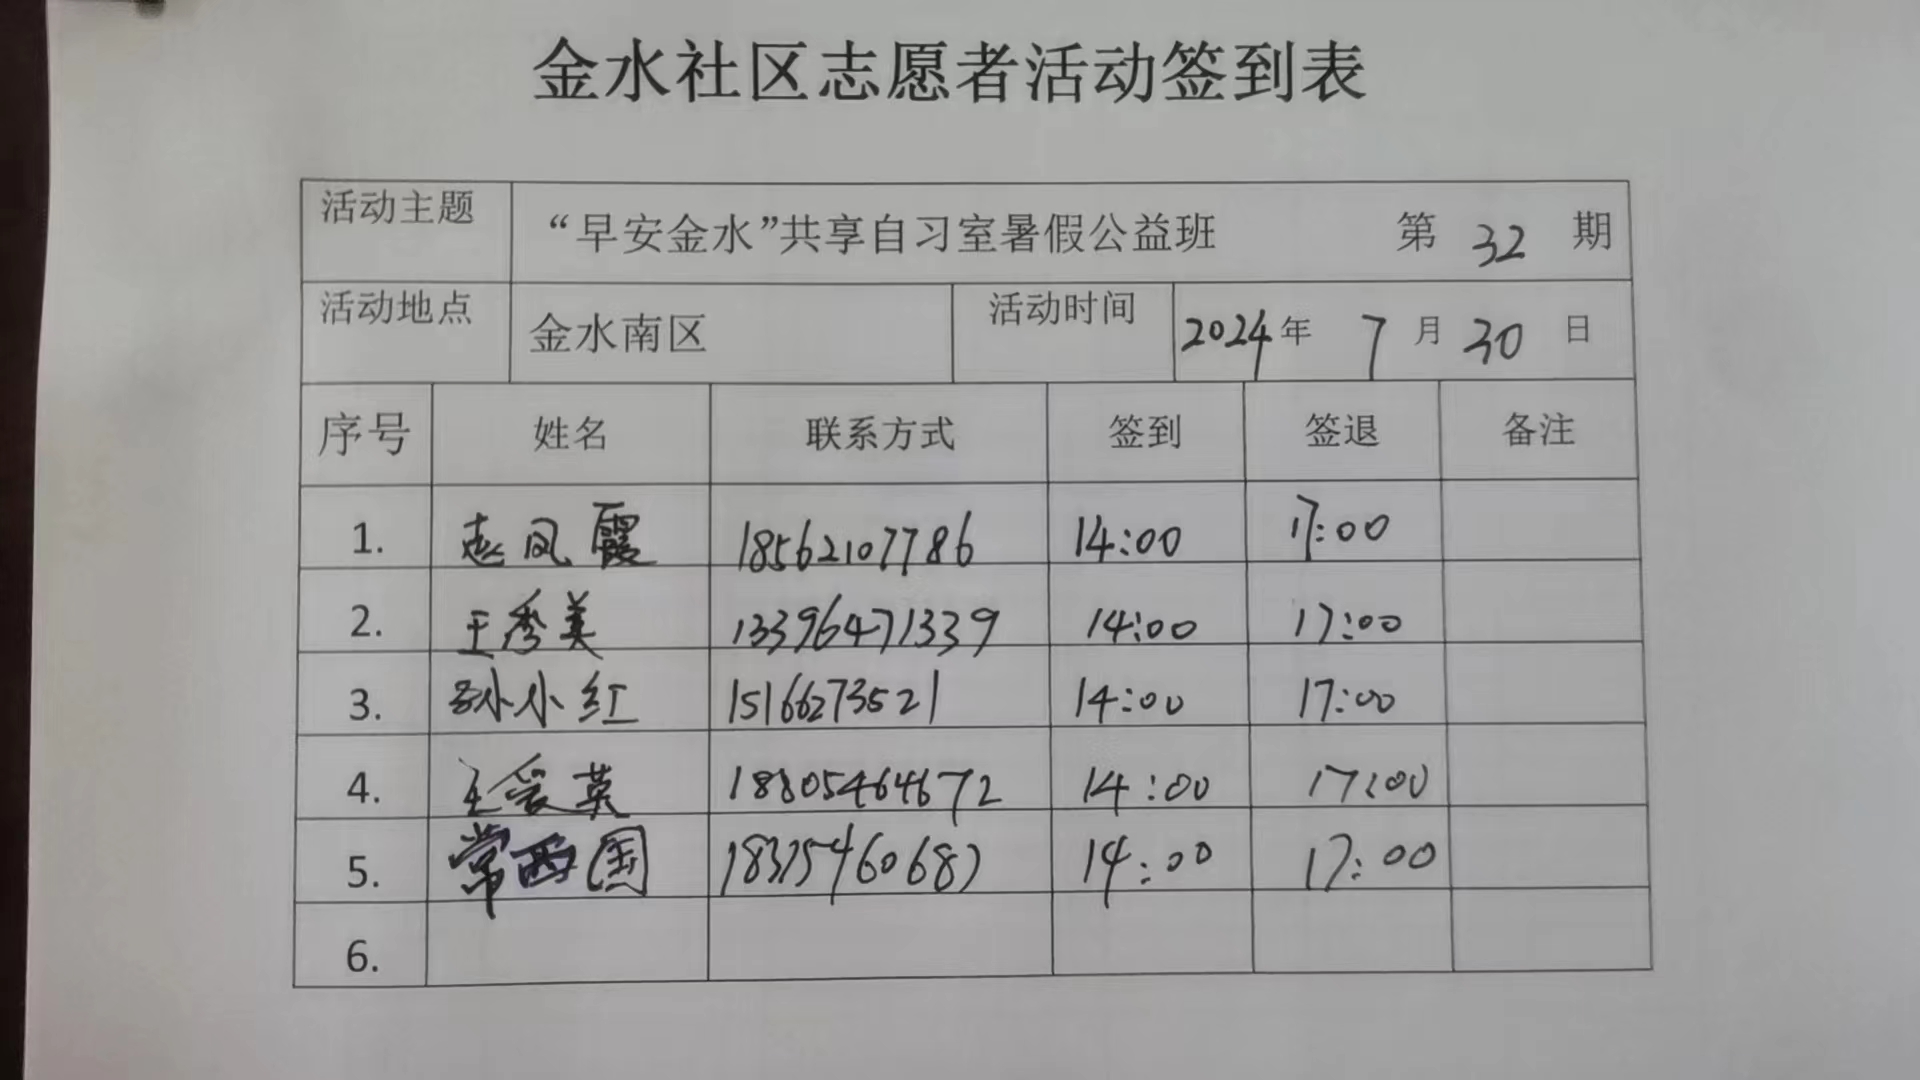 金水社区志愿者活动签到表
活动主题 “早安金水”共享自习室暑假公益班 第 32 期
活动地点 金水南区 活动时间 2024年 7月 30日
序号 姓名 联系方式 签到 签退 备注
1. 赵凤霞 18562107786 14:00 17:00
2. 王秀美 13396471339 14:00 17:00
3. 孙小红 15166273521 14:00 17:00
4. 王爱英 18805464672 14:00 17:00
5. 常西国 14:00 17:00
6.